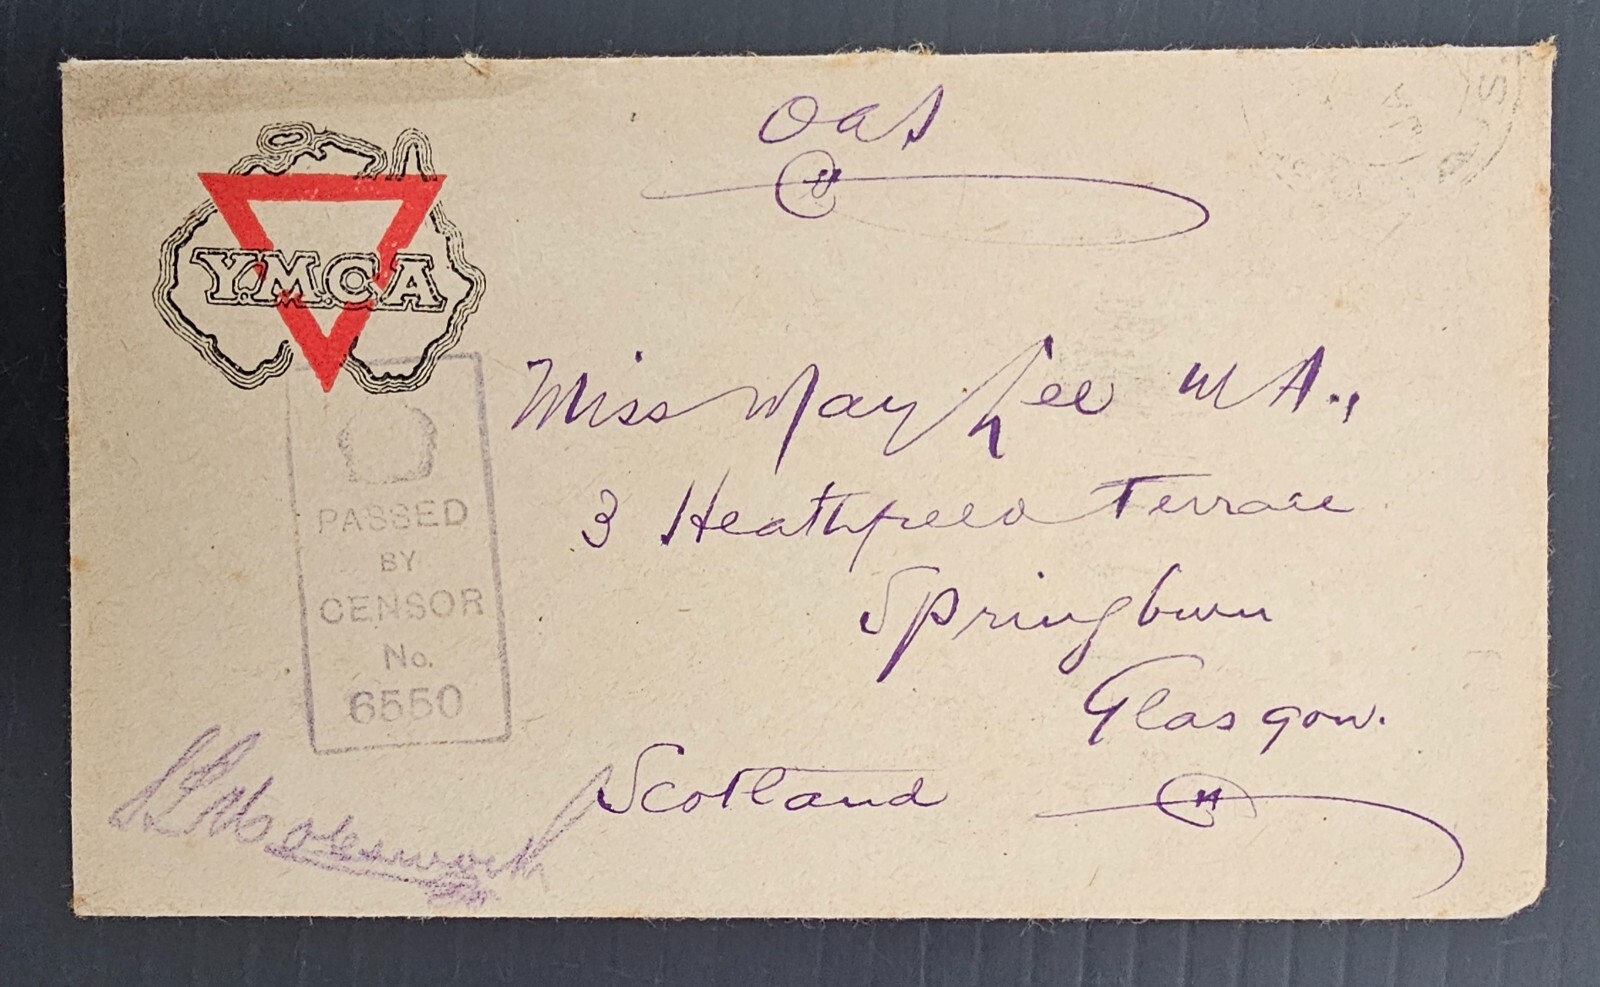 OAS
Y.M.C.A
Miss May Lee M A.,
3 Heathfield Terrace
Springburn
Glasgow.
Scotland
PASSED
BY
CENSOR
No.
6550